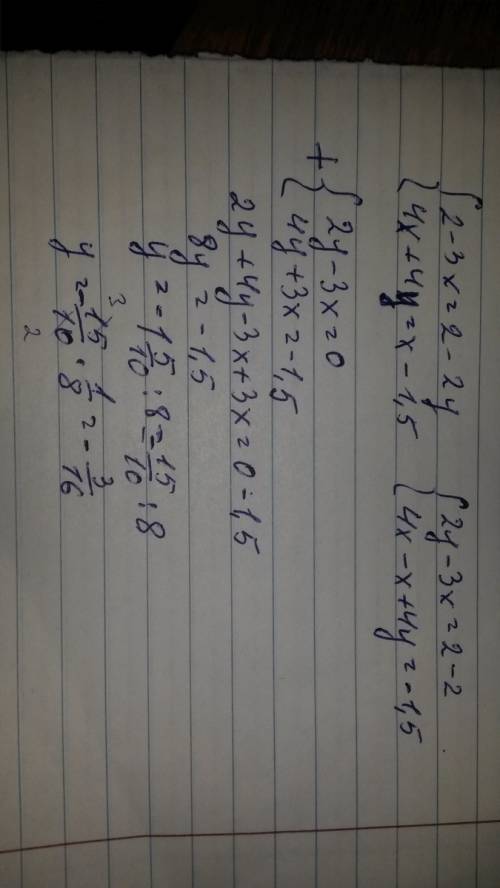 { 2-3x=2-2y { 2y-3x=2-2
{ 4x+4y=x-1,5 { 4x-x+4y=-1,5
+ { 2y-3x=0
{ 4y+3x=-1,5
2y+4y-3x+3x=0-1,5
8y=-1,5
y=-1 5/10 : 8 = 15/10 : 8
y=- 15/10 · 1/8 = - 3/16
3
2